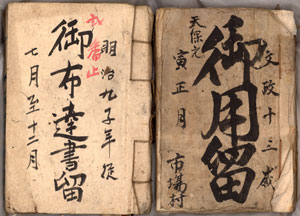 文政十三歳
御用留
天保元
寅正月
市場村
明治九子年従
御布達書留
七月至十二月